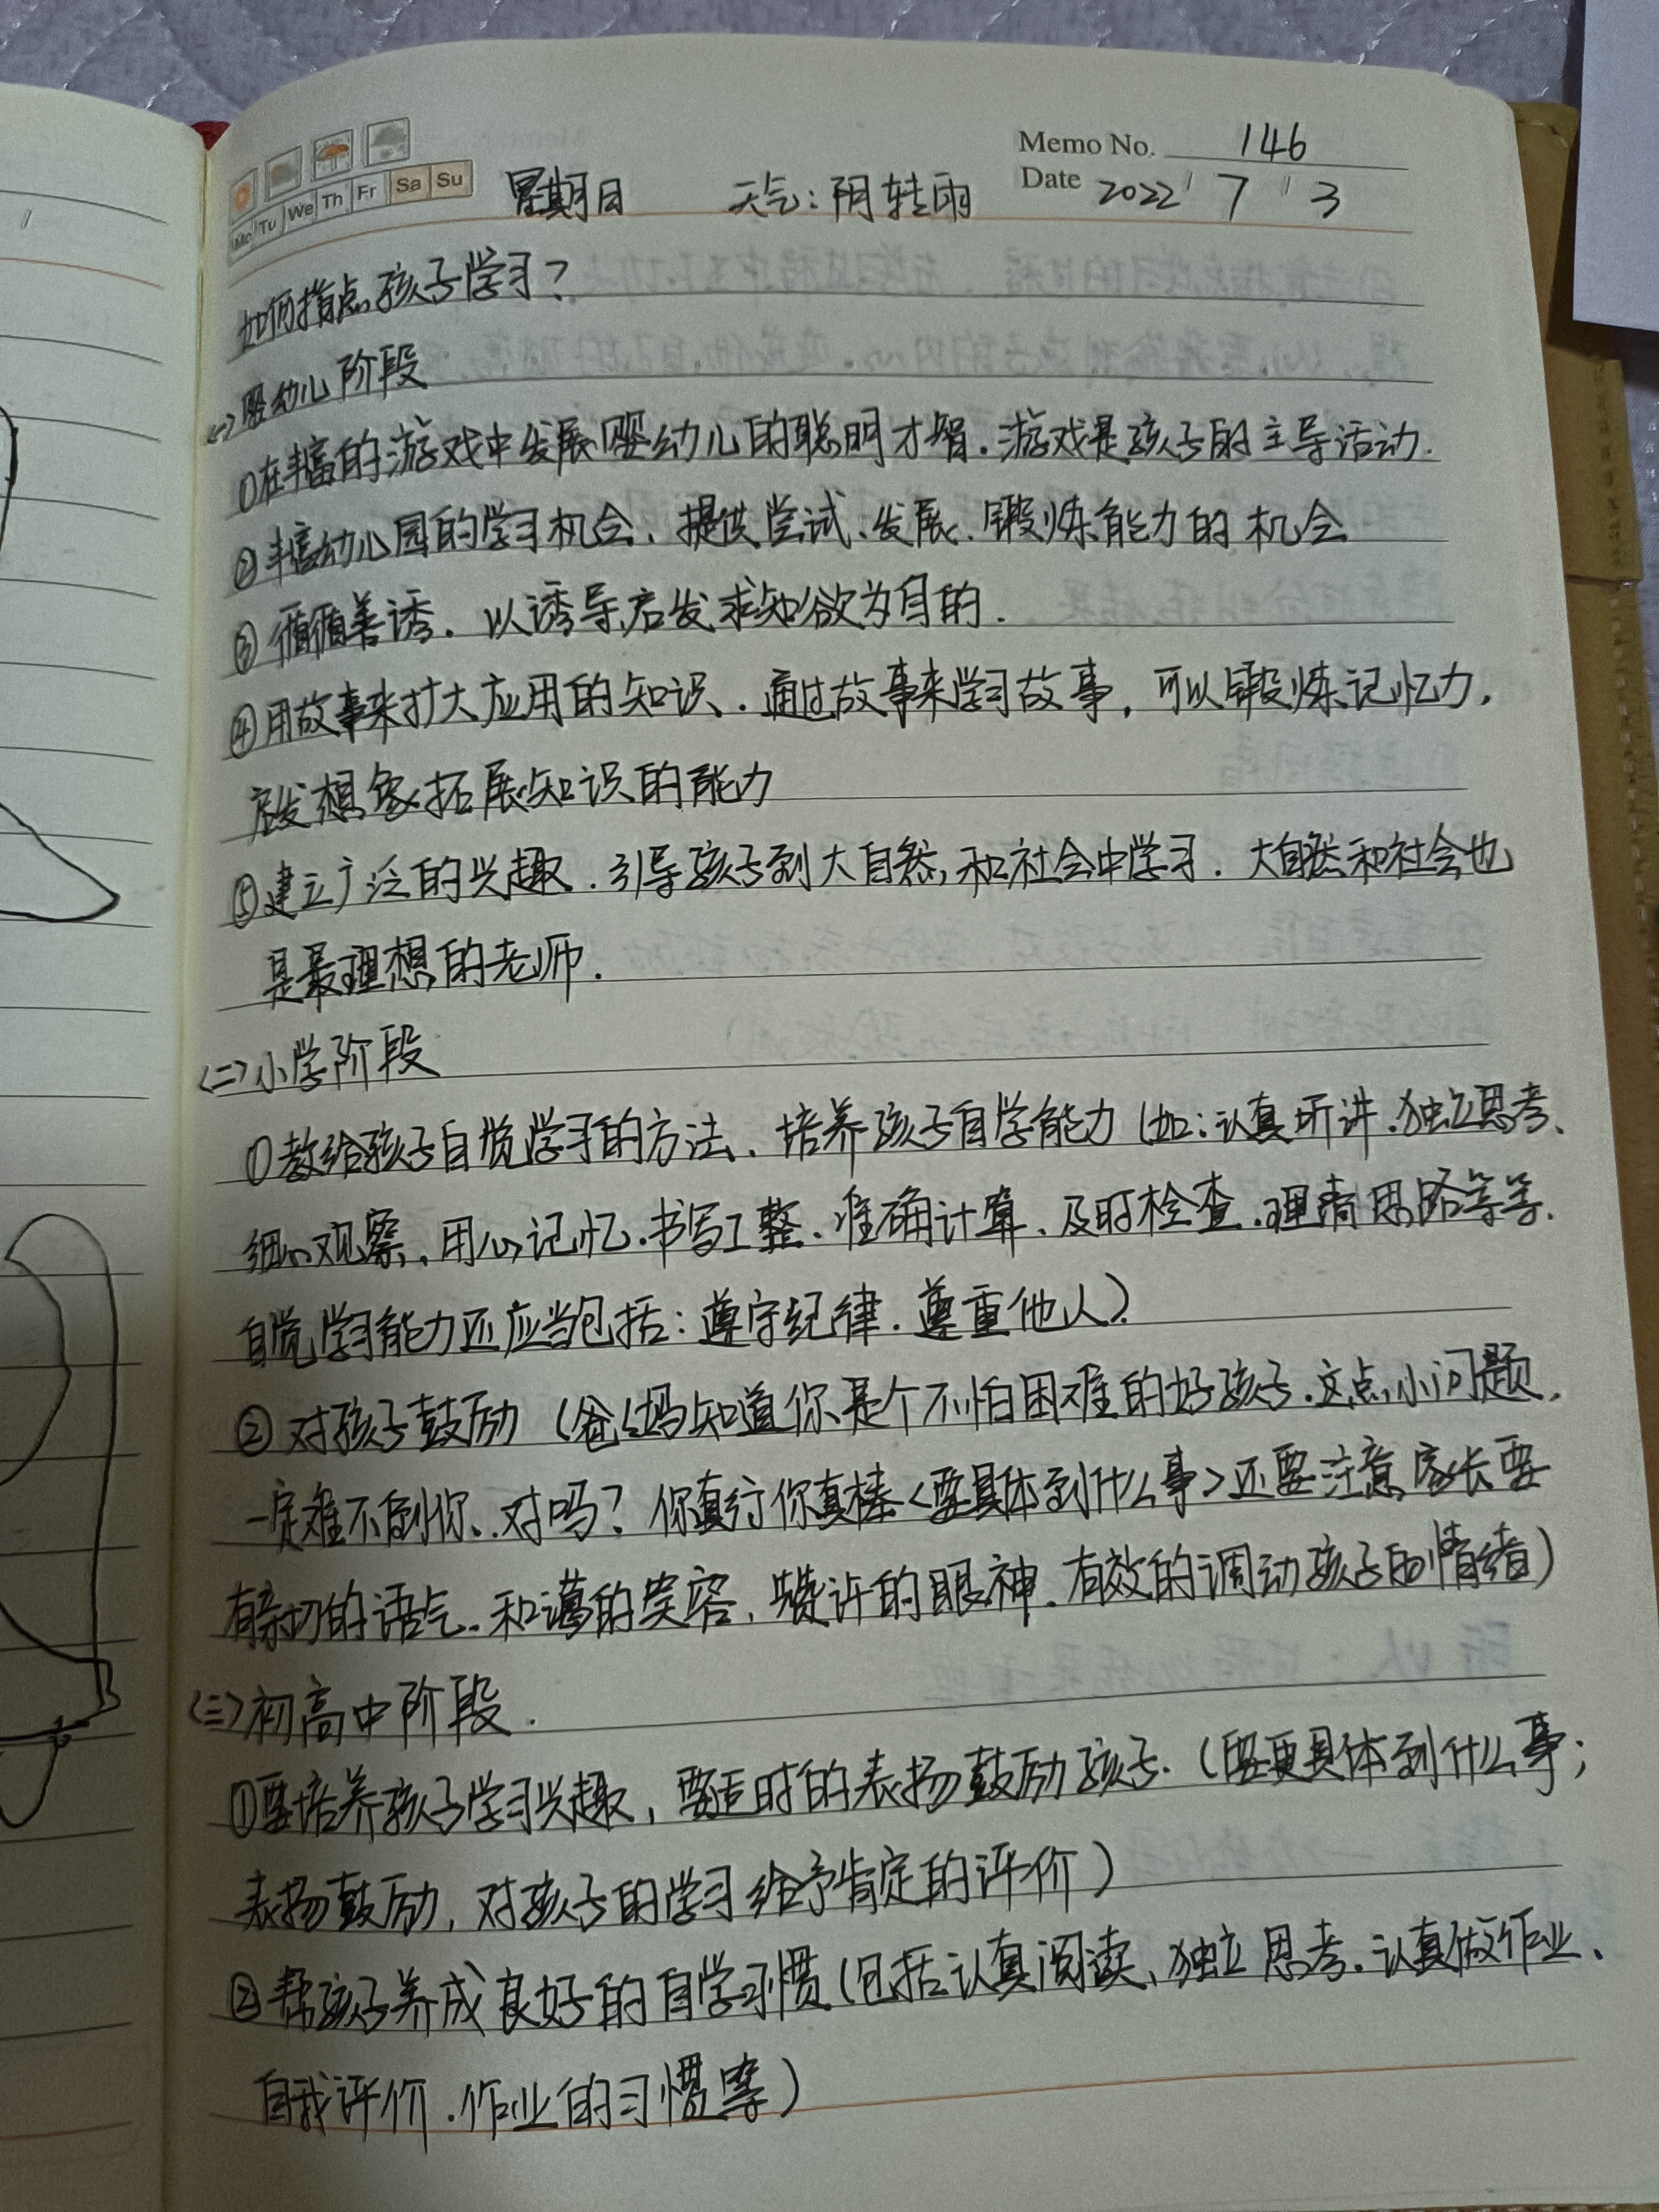 Memo No. 146
Mo Tu We Th Fr Sa Su 星期日 天气：阴转雨 Date 2022 / 7 / 3
如何指点孩子学习？
<一>婴幼儿阶段
①在丰富的游戏中发展婴幼儿的聪明才智.游戏是孩子的主导活动.
②丰富幼儿园的学习机会、提供尝试、发展、锻炼能力的机会
③循循善诱.以诱导启发求知欲为目的.
④用故事来扩大应用的知识.通过故事来学习故事，可以锻炼记忆力，
启发想象拓展知识的能力
⑤建立广泛的兴趣.引导孩子到大自然和社会中学习.大自然和社会也
是最理想的老师.
<二>小学阶段
①教给孩子自觉学习的方法、培养孩子自学能力（如：认真听讲.独立思考、
细心观察、用心记忆.书写工整、准确计算、及时检查.理清思路等等.
自觉学习能力还应当包括：遵守纪律.尊重他人）.
②对孩子鼓励（爸妈知道你是个不怕困难的好孩子.这点小问题，
一定难不倒你、对吗？你真行你真棒<要具体到什么事>还要注意家长要
有亲切的语气.和蔼的笑容，赞许的眼神.有效的调动孩子的情绪）
<三>初高中阶段.
①要培养孩子学习兴趣，要适时的表扬鼓励孩子.（要更具体到什么事；
表扬鼓励，对孩子的学习给予肯定的评价）
②帮孩子养成良好的自学习惯（包括认真阅读、独立思考.认真做作业、
自我评价.作业的习惯等）